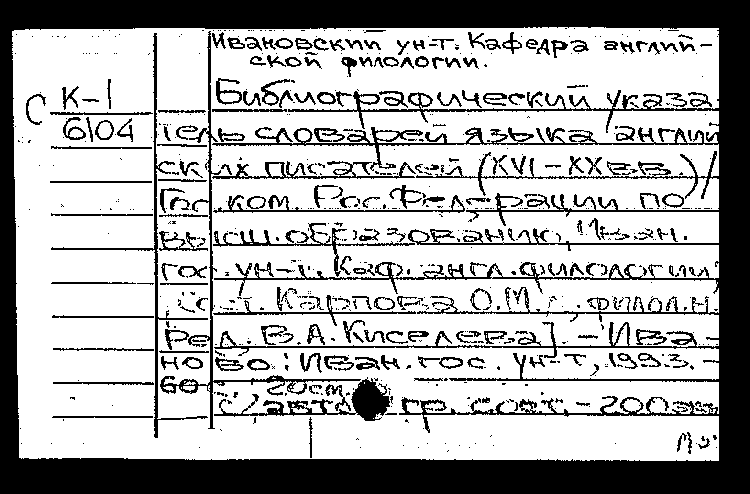 Ивановский ун-т. Кафедра англий-
ской филологии.
С К-1
6104
Библиографический указа-
тель словарей языка англий
ских писателей (XVI-XX в.в.)/
Гос.ком. Рос.Федерации по
высш.образованию, Иван.
гос.ун-т. Каф.англ.филологии;
Сост. Карпова О.М., филол.н.
Ред. В.А.Киселева]. - Ива-
ново: Иван.гос. ун-т, 1993. -
60 с., 20см.
С автогр. сост. - 200экз